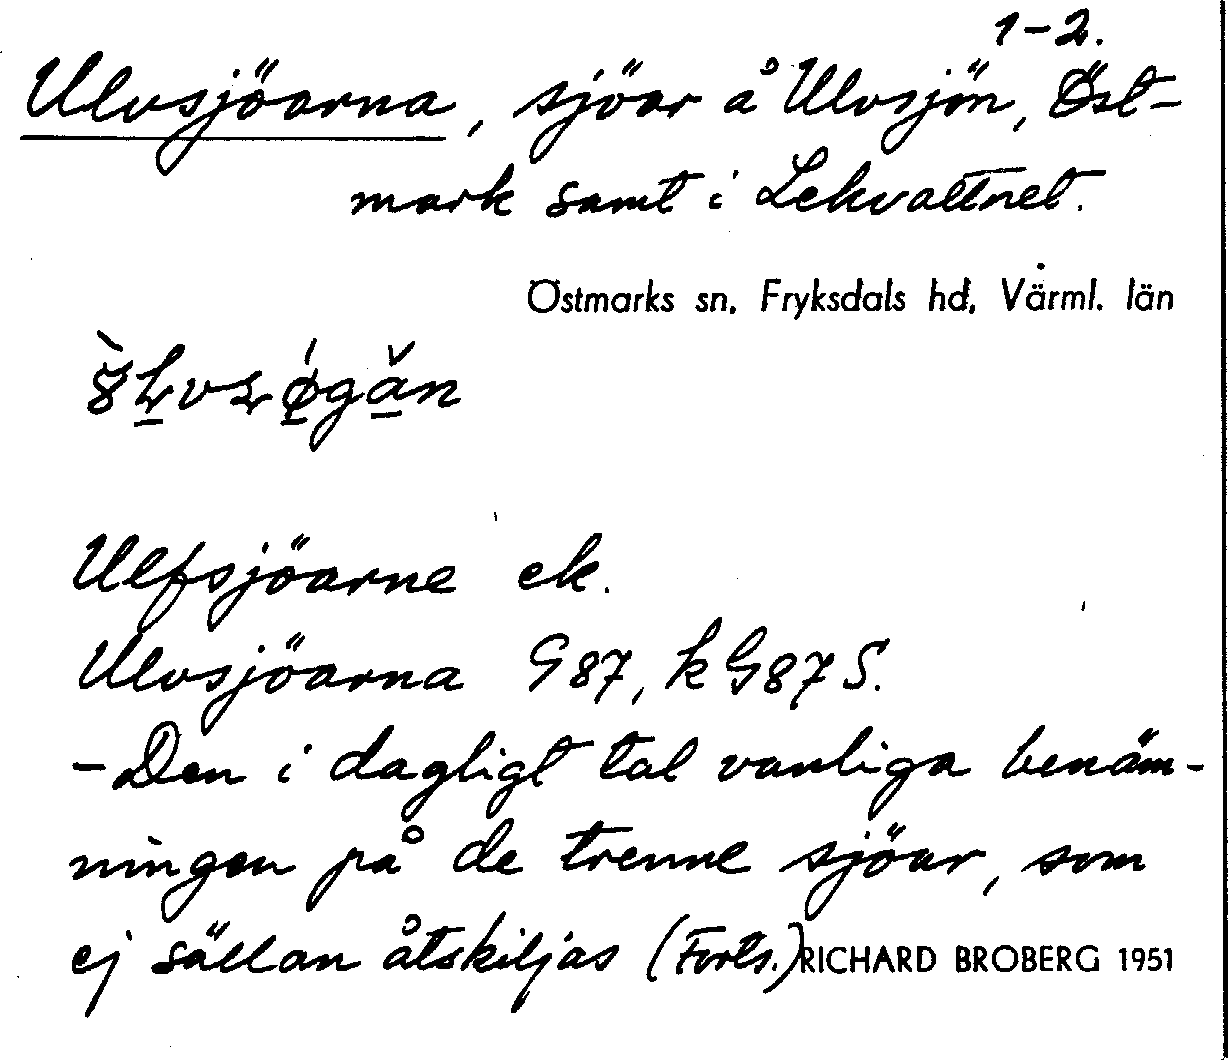 1-2.
Ulvsjöarna, sjöar å Ulvsjön, Öst-
mark samt i Lekvattnet.
Östmarks sn, Fryksdals hd, Värml. län
Ulfsjöarne ek.
Ulvsjöarna G 87, k G 87 S.
- Den i dagligt tal vanliga benäm-
ningen på de trenne sjöar, som
ej sällan åtskiljas (Forts.) RICHARD BROBERG 1951